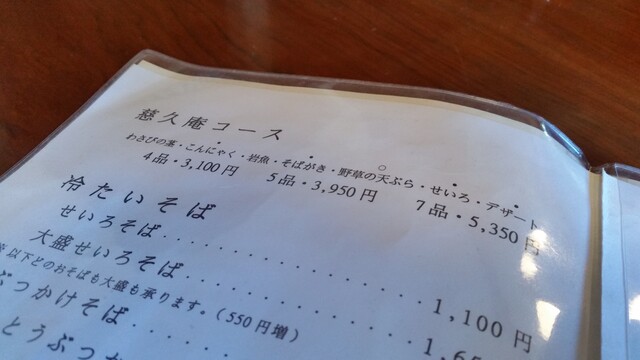 慈久庵コース
わさびの茎・こんにゃく・岩魚・そばがき・野草の天ぷら・せいろ・デザート
4品・3,100円 5品・3,950円 7品・5,350円
冷たいそば
せいろそば 1,100円
大盛せいろそば 1,65
以下どのおそばも大盛も承ります。(550円増)
ぶっかけそば
とうぶつか